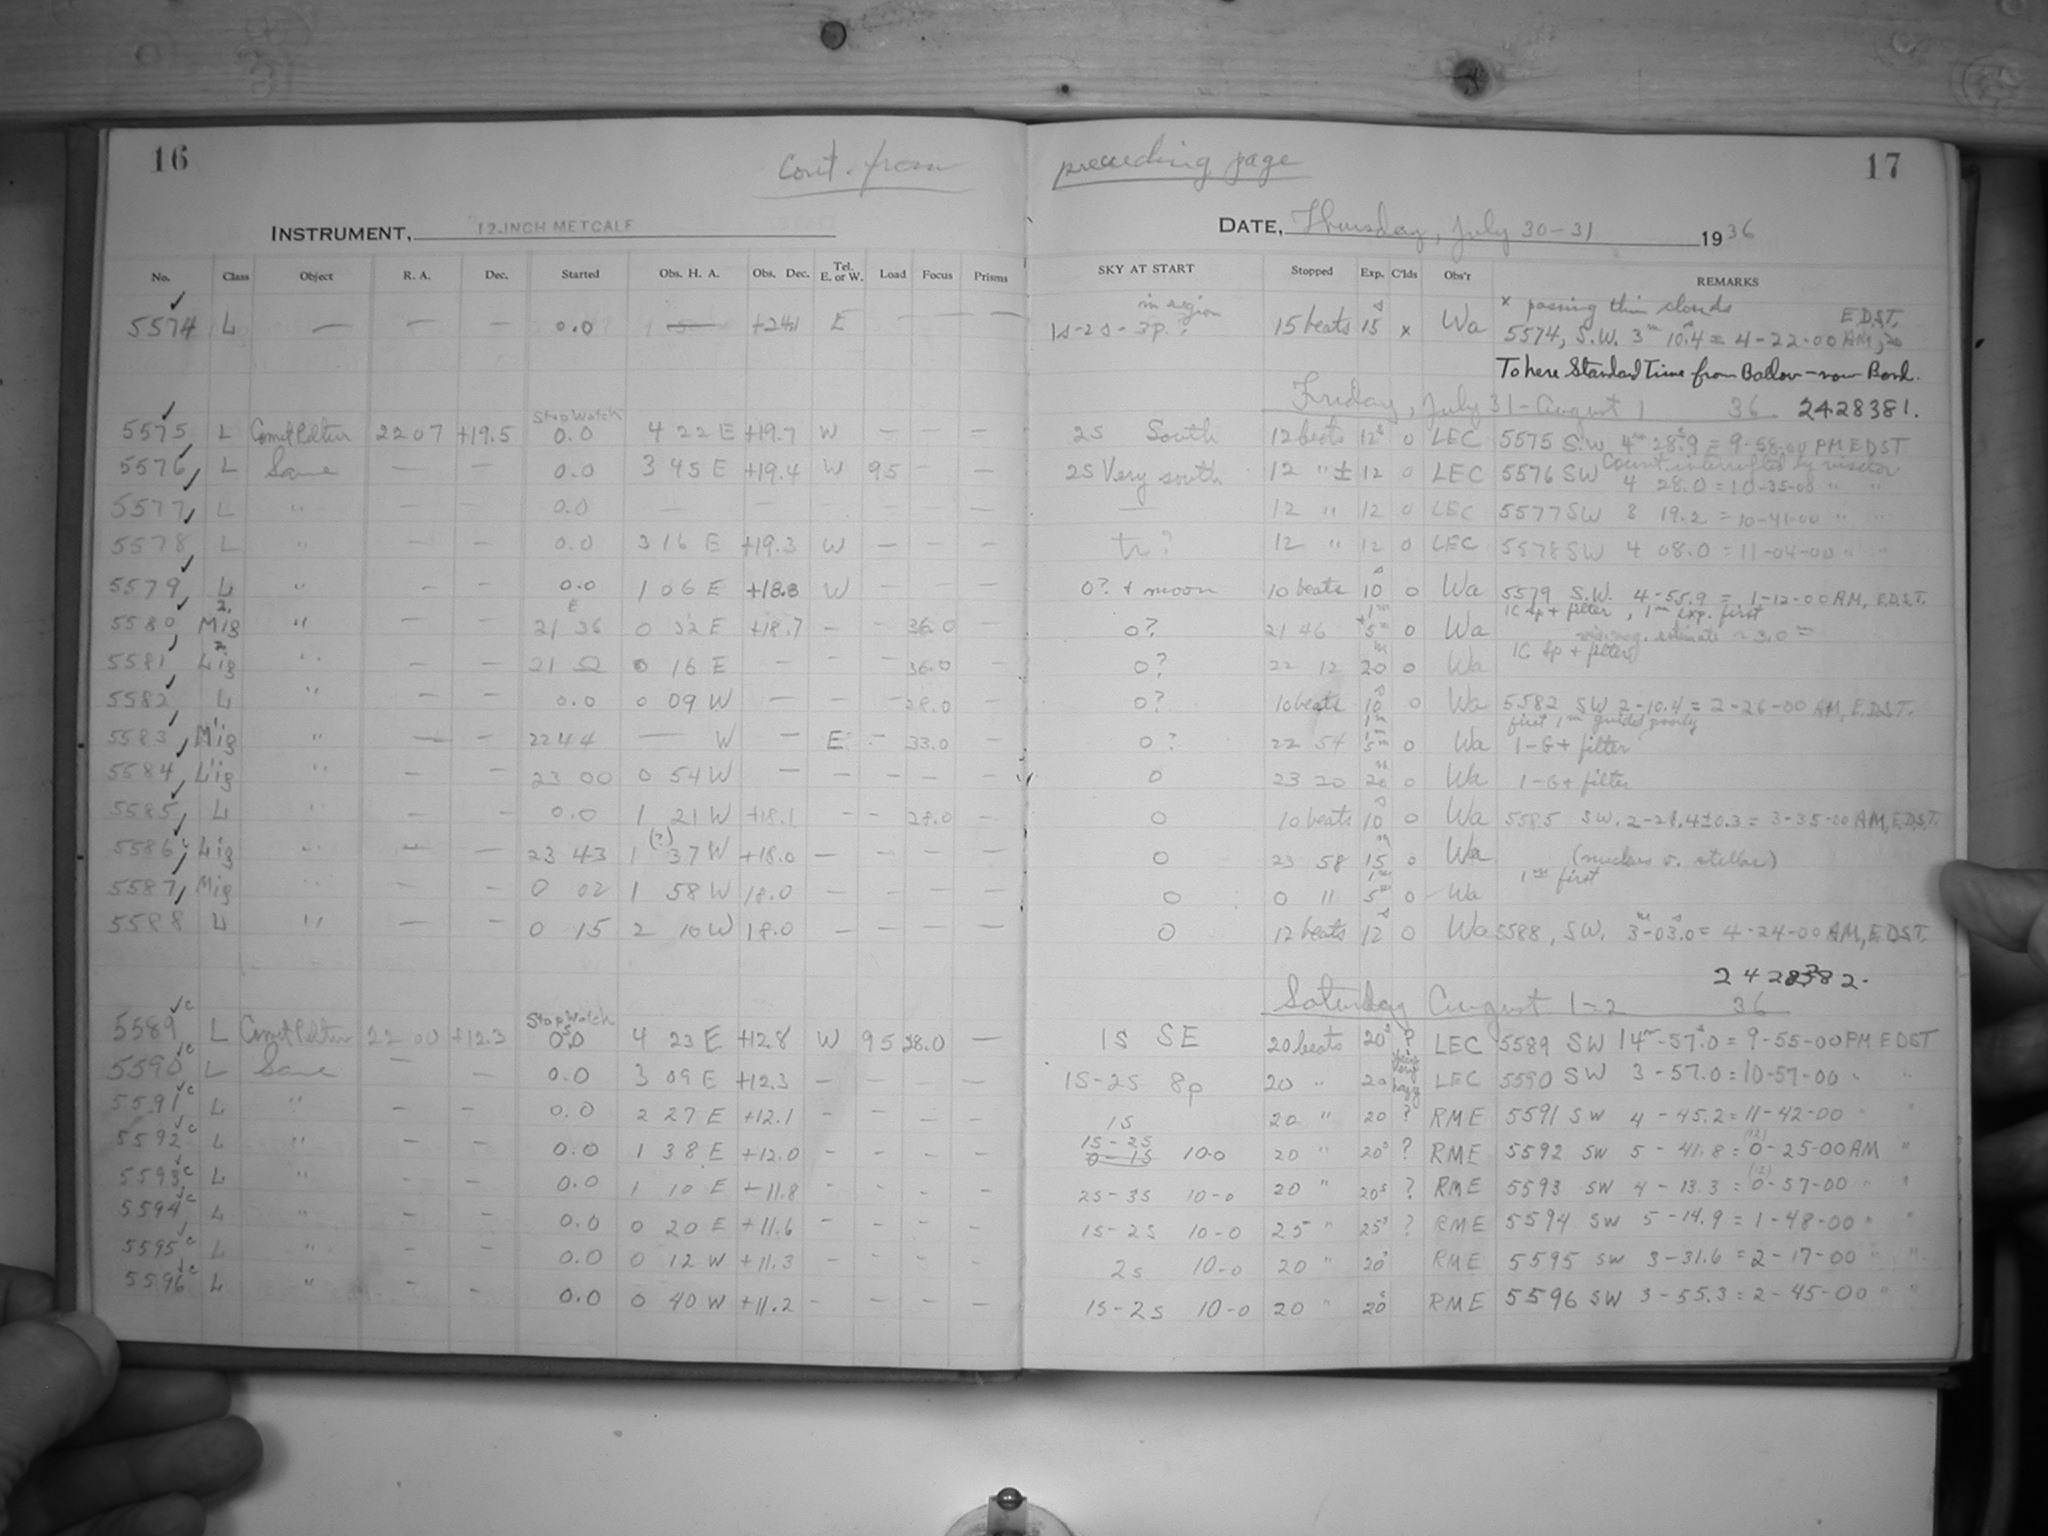 16
Cont. from
preceding page
17
INSTRUMENT, 12-INCH METCALF
DATE, Thursday, July 30-31 1936
No. Class Object R. A. Dec. Started Obs. H. A. Obs. Dec. Tel. E. or W. Load Focus Prisms SKY AT START Stopped Exp. C'lds Obs'r REMARKS
in region x passing thin clouds E.D.S.T.
5574 L — — — 0.0 — E — — — 1s-2s-3p.? 15 beats 15 s x Wa 5574, S.W. 3 m 10.4 s = 4-22-00 AM,
To here Standard Time from — now Bond.
Friday, July 31 - August 1 36 2428381.
Stop Watch
5575 L 22 07 +19.5 0.0 4 22 E +19.7 W — — — 2s South 12 beats 12 s 0 LEC 5575 S.W. 4 m 28.9 s = 9-58-00 PM EDST
Count interrupted by visitor
5576 L Same — — 0.0 3 45 E +19.4 W 95 — — 2s Very south 12 " ± 12 0 LEC 5576 SW 4 28.0 = 10-35-00 " "
5577 L " 0.0 — — — — — — 12 " 12 0 LEC 5577 SW 8 19.2 = 10-41-00 " "
5578 L " — — 0.0 3 16 E +19.3 W — — — tr? 12 " 12 0 LEC 5578 SW 4 08.0 = 11-04-00 " "
5579 L " — — 0.0 1 06 E +18.8 W — — — 0? + moon 10 beats 10 s 0 Wa 5579 S.W. 4-55.9 = 1-12-00 AM, E.D.S.T.
5580 Mig 2 " — — E 21 36 0 32 E +18.7 — — 36.0 — 0? 21 46 1 m + 5 m 0 Wa IC sp + filter, 1 m exp. first
estimate
5581 Lig 2 " — — 21 52 0 16 E — — — 36.0 — 0? 22 12 20 m 0 Wa IC sp + filter
5582 L " — — 0.0 0 09 W — — — 28.0 — 0? 10 beats 10 s 0 Wa 5582 SW 2-10.4 = 2-26-00 AM, E.D.S.T.
first 1 m guided poorly
5583 Mig 1 " — — 22 44 — W — E — 33.0 — 0? 22 54 1 m 5 m 0 Wa 1-G + filter
5584 Lig 1 " — — 23 00 0 54 W — — — — — 0 23 20 20 m 0 Wa 1-G + filter
5585 L " — — 0.0 1 21 W +18.1 — — 28.0 — 0 10 beats 10 s 0 Wa 5585 SW. 2-28.4±0.3 = 3-35-00 AM, E.D.S.T.
5586 Lig " — — 23 43 1 (?) 37 W +18.0 — — — — 0 23 58 15 m 0 Wa (nucleus v. stellar)
1 m first
5587 Mig " — — 0 02 1 58 W 18.0 — — — — 0 0 11 1 m 5 m 0 Wa
5588 L " — — 0 15 2 10 W 18.0 — — — — 0 12 beats 12 s 0 Wa 5588, SW. 3 m -03.0 s = 4-24-00 AM, E.D.S.T.
2428382.
Saturday August 1-2 36
Stop Watch
5589 c L 22 00 +12.3 0.0 s 4 23 E +12.8 W 95 28.0 — 1s SE 20 beats 20 s ? LEC 5589 SW 14 m -57.0 s = 9-55-00 PM EDST
5590 c L Same — — 0.0 3 09 E +12.3 — — — — 1s-2s 8p 20 " 20 hazy LEC 5590 SW 3-57.0 = 10-57-00 " "
5591 c L " — — 0.0 2 27 E +12.1 — — — — 1s 20 " 20 ? RME 5591 SW 4-45.2 = 11-42-00 "
5592 c L " — — 0.0 1 38 E +12.0 — — — — 1s-2s 10-0 20 " 20 s ? RME 5592 SW 5-41.8 = (12) 0-25-00 AM "
5593 c L " — — 0.0 1 10 E +11.8 — — — — 2s-3s 10-0 20 " 20 s ? RME 5593 SW 4-13.3 = (12) 0-57-00 " "
5594 c L " — — 0.0 0 20 E +11.6 — — — — 1s-2s 10-0 25 " 25 s ? RME 5594 SW 5-14.9 = 1-48-00 " "
5595 c L " — — 0.0 0 12 W +11.3 — — — — 2s 10-0 20 " 20 s RME 5595 SW 3-31.6 = 2-17-00 " "
5596 c L " — — 0.0 0 40 W +11.2 — — — — 1s-2s 10-0 20 " 20 s RME 5596 SW 3-55.3 = 2-45-00 " "